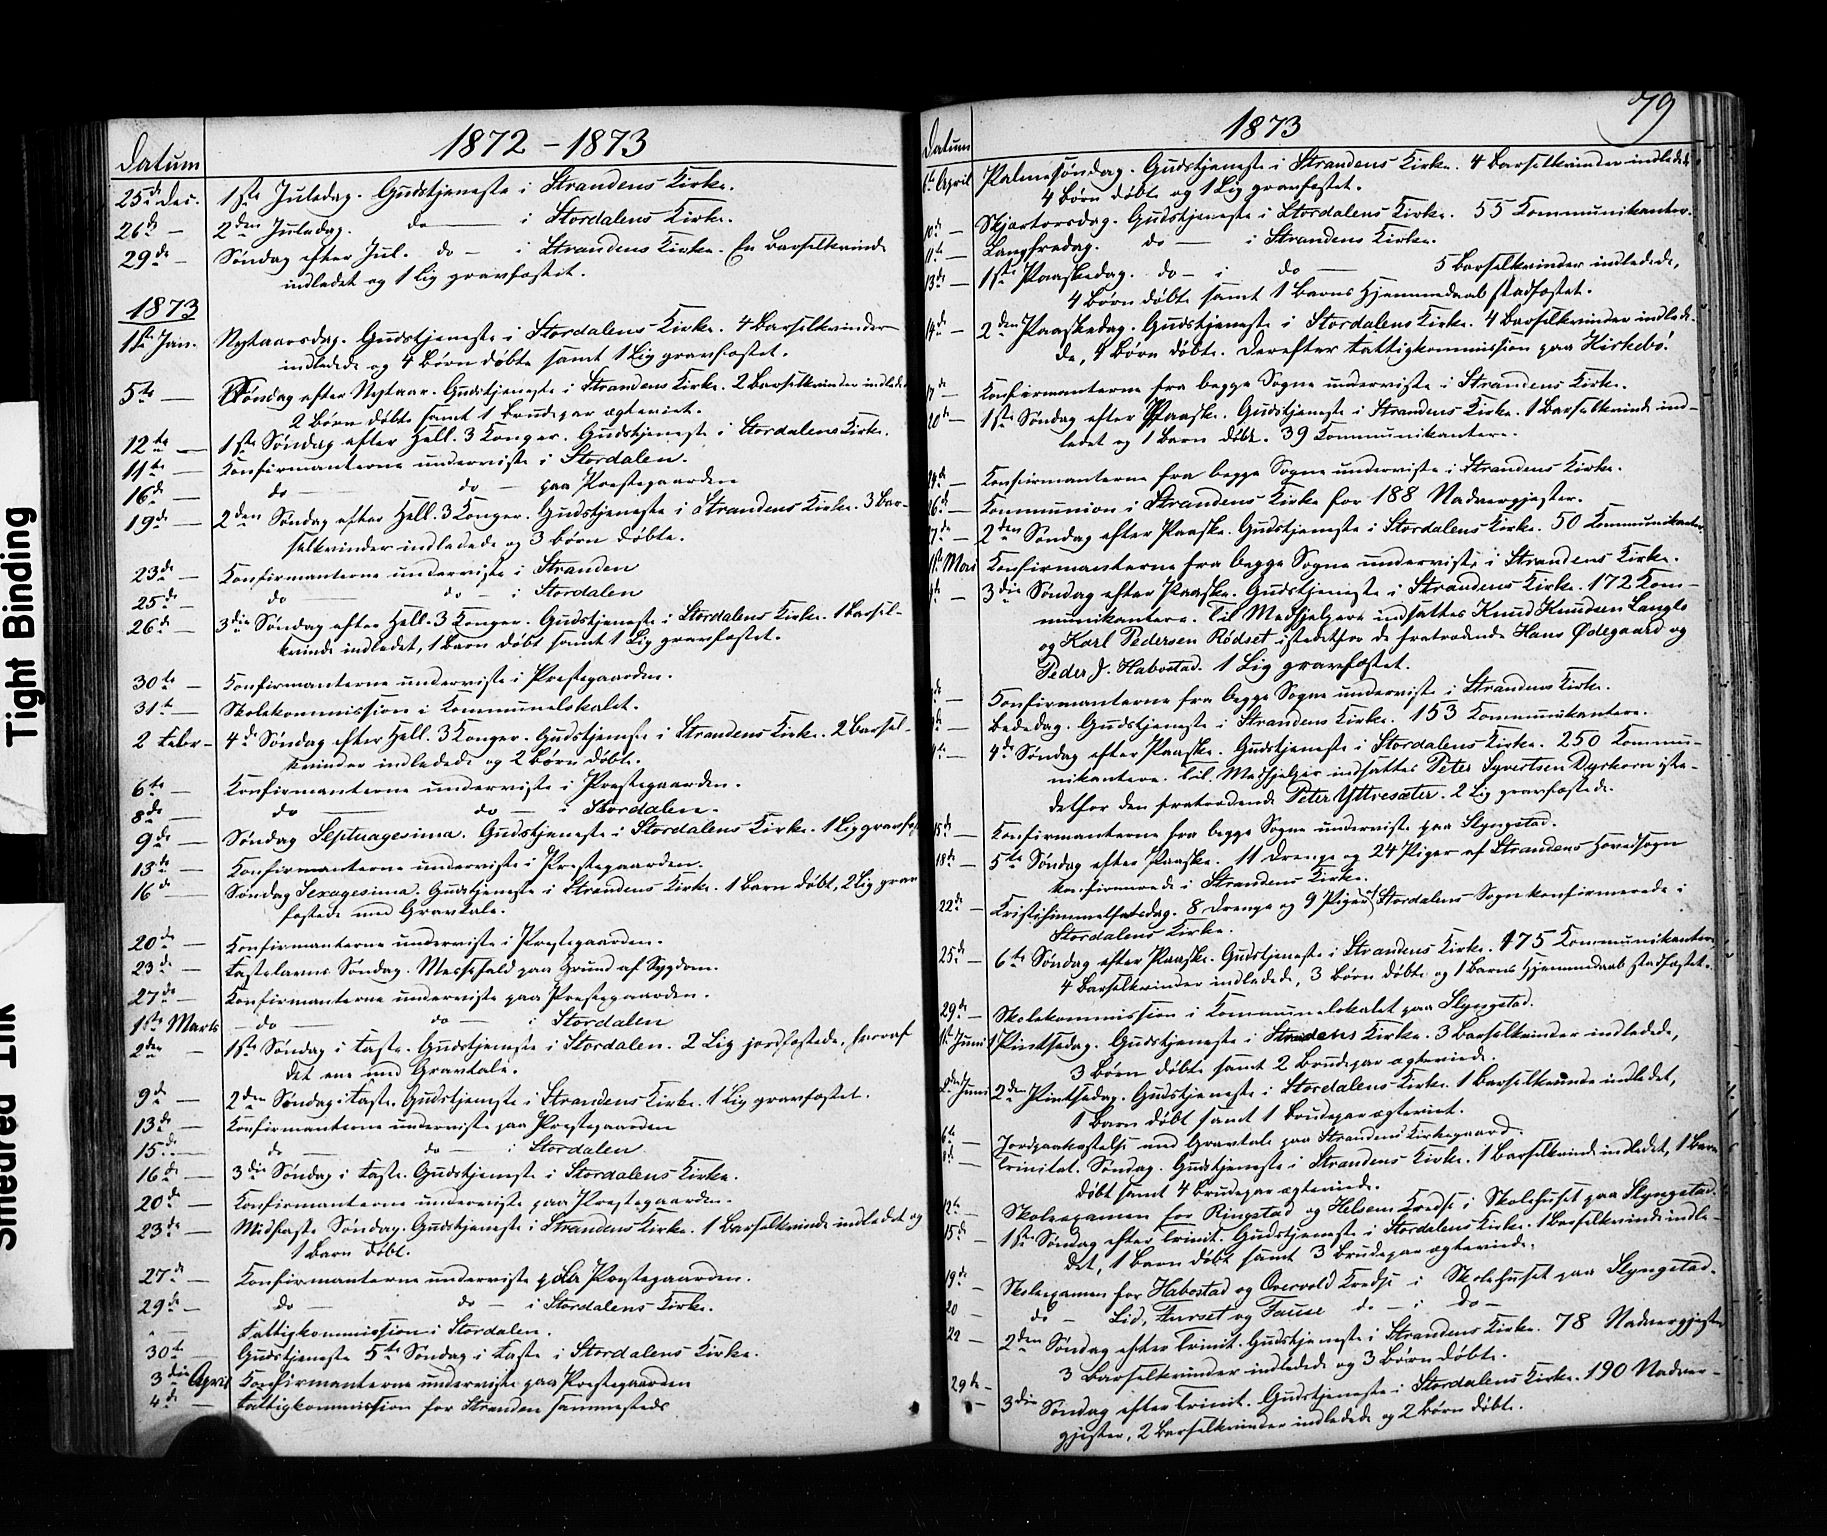 Tight Binding
Smeared Ink
1872 - 1873
Datum
25de Dec. 1ste Juledag. Gudstjeneste i Strandens Kirke.
26de — 2den Juledag. do — i Stordalens Kirke.
29de — Søndag efter Jul. do — i Strandens Kirke. En Barselkvinde
indledet og 1 Lig gravfæstet.
1873
1ste Jan. Nytaarsdag. Gudstjeneste i Stordalens Kirke. 4 Barselkvinder
indledede og 4 Børn døbte samt 1 Lig gravfæstet.
5te — Søndag efter Nytaar. Gudstjeneste i Strandens Kirke. 2 Barselkvinder indledede
2 Børn døbte samt 1 Brudepar ægteviet.
12te — 1ste Søndag efter Hell. 3 Konger. Gudstjeneste i Stordalens Kirke.
11te — Konfirmanterne underviste i Stordalen.
16de — do — do — paa Præstegaarden
19de — 2den Søndag efter Hell. 3 Konger. Gudstjeneste i Strandens Kirke. 3 Bar-
selkvinder indledede og 3 Børn døbte.
23de — Konfirmanterne underviste i Stranden
25de — do — do — i Stordalen
26de — 3die Søndag efter Hell. 3 Konger. Gudstjeneste i Stordalens Kirke. 1 Barsel-
kvinde indledet, 1 Barn døbt samt 1 Lig gravfæstet.
30te — Konfirmanterne underviste i Præstegaarden.
31te — Skolekommission i Kommunelokalet.
2 Febr — 4de Søndag efter Hell. 3 Konger. Gudstjeneste i Strandens Kirke. 2 Barsel-
kvinder indledede og 2 Børn døbte.
6te — Konfirmanterne underviste i Præstegaarden.
8de — do — do — i Stordalen.
9de — Søndag Septuagesima. Gudstjeneste i Stordalens Kirke. 1 Lig gravfæstet
13de — Konfirmanterne underviste i Præstegaarden.
16de — Søndag Sexagesima. Gudstjeneste i Strandens Kirke. 1 Barn døbt, 2 Lig grav
fæstede med Gravtale.
20de — Konfirmanterne underviste i Præstegaarden.
23de — Fastelavns Søndag. Messefald paa Grund af Sygdom.
27de — Konfirmanterne underviste paa Præstegaarden.
1ste Marts — do — do — i Stordalen
2den — 1ste Søndag i Faste. Gudstjeneste i Stordalen. 2 Lig jordfæstede, hvoraf
det ene med Gravtale.
9de — 2den Søndag i Faste. Gudstjeneste i Strandens Kirke. 1 Lig gravfæstet.
13de — Konfirmanterne underviste paa Præstegaarden
15de — do — do — i Stordalen
16de — 3die Søndag i Faste. Gudstjeneste i Stordalens Kirke.
20de — Konfirmanterne underviste paa Præstegaarden.
23de — Midfaste Søndag. Gudstjeneste i Strandens Kirke. 1 Barselkvinde indledet og
1 Barn døbt.
27de — Konfirmanterne underviste paa Præstegaarden.
29de — do — do — i Stordalens Kirke.
" — Fattigkommission i Stordalen.
30te — Gudstjeneste 5te Søndag i Faste i Stordalens Kirke.
3die April Konfirmanterne underviste paa Præstegaarden
4de — Fattigkommission for Stranden sammesteds
79
1873
Datum
6te April Palmesøndag. Gudstjeneste i Strandens Kirke. 4 Barselkvinder indledede
4 Børn døbte og 1 Lig gravfæstet.
10de — Skjærtorsdag. Gudstjeneste i Stordalens Kirke. 55 Kommunikanter.
11te — Langfredag. do — i Strandens Kirke.
13de — 1ste Paaskedag. do — i do — 5 Barselkvinder indledede,
4 Børn døbte samt 1 Barns Hjemmedaab stadfæstet.
14de — 2den Paaskedag. Gudstjeneste i Stordalens Kirke. 4 Barselkvinder indlede-
de, 4 Børn døbte. Derefter Fattigkommission paa Kirkebø.
17de Konfirmanterne fra begge Sogne underviste i Strandens Kirke.
20de — 1ste Søndag efter Paaske. Gudstjeneste i Strandens Kirke. 1 Barselkvinde ind-
ledet og 1 Barn døbt. 39 Kommunikantere.
24de — Konfirmanterne fra begge Sogne underviste i Strandens Kirke.
26de — Kommunion i Strandens Kirke for 188 Nadvergjester.
27de — 2den Søndag efter Paaske. Gudstjeneste i Stordalens Kirke. 50 Kommunikanter.
1ste Mai Konfirmanterne fra begge Sogne underviste i Strandens Kirke.
4de — 3die Søndag efter Paaske. Gudstjeneste i Strandens Kirke. 172 Kom-
munikantere. Til Medhjelpere indsattes Knud Knudsen Langlo
og Karl Pedersen Rødset istedetfor de fratrædende Hans Ødegaard og
Peder J. Habostad. 1 Lig gravfæstet.
— Konfirmanterne fra begge Sogne underviste i Strandens Kirke.
— Bededag. Gudstjeneste i Strandens Kirke. 153 Kommunikantere.
— 4de Søndag efter Paaske. Gudstjeneste i Stordalens Kirke. 250 Kommu-
nikantere. Til Medhjelper indsattes Peter Syvertsen Dyrkorn iste-
detfor den fratrædende Peter Yttresæter. 2 Lig gravfæstede.
15de — Konfirmanterne fra begge Sogne underviste paa Slyngstad.
18de — 5te Søndag efter Paaske. 11 Drenge og 24 Piger af Strandens Hovedsogn
konfirmerede i Strandens Kirke.
22de — Kristihimmelfartsdag. 8 Drenge og 9 Piger af Stordalens Sogn konfirmerede i
Stordalens Kirke.
25de — 6te Søndag efter Paaske. Gudstjeneste i Strandens Kirke. 175 Kommunikantere
4 Barselkvinder indledede, 3 Børn døbte og 1 Barns Hjemmedaab stadfæstet.
29de — Skolekommission i Kommunelokalet paa Slyngstad.
1ste Juni 1 Pintsedag. Gudstjeneste i Strandens Kirke. 3 Barselkvinder indledede,
3 Børn døbte samt 2 Brudepar ægteviede.
2den Juni 2den Pintsedag. Gudstjeneste i Stordalens Kirke. 1 Barselkvinde indledet,
1 Barn døbt samt 1 Brudepar ægteviet.
6te — Jordpaakastelse med Gravtale paa Strandens Kirkegaard.
8de — Trinitat. Søndag. Gudstjeneste i Strandens Kirke. 1 Barselkvinde indledet, 1 Barn
døbt samt 4 Brudepar ægteviede.
12te — Skoleexamen for Ringstad og Helsem Kreds i Skolehuset paa Slyngstad.
15de — 1ste Søndag efter Trinit. Gudstjeneste i Stordalens Kirke. 1 Barselkvinde indle-
det, 1 Barn døbt samt 3 Brudepar ægteviede.
19de — Skoleexamen for Habostad og Overvold Kreds i Skolehuset paa Slyngstad.
20 — do — Lid, Furset og Fause do — i do —
22 — 2den Søndag efter Trinit. Gudstjeneste i Strandens Kirke. 78 Nadvergjester
3 Barselkvinder indledede og 3 Børn døbte.
29de — 3die Søndag efter Trinit. Gudstjeneste i Stordalens Kirke. 190 Nadver-
gjester, 2 Barselkvinder indledede og 2 Børn døbte.